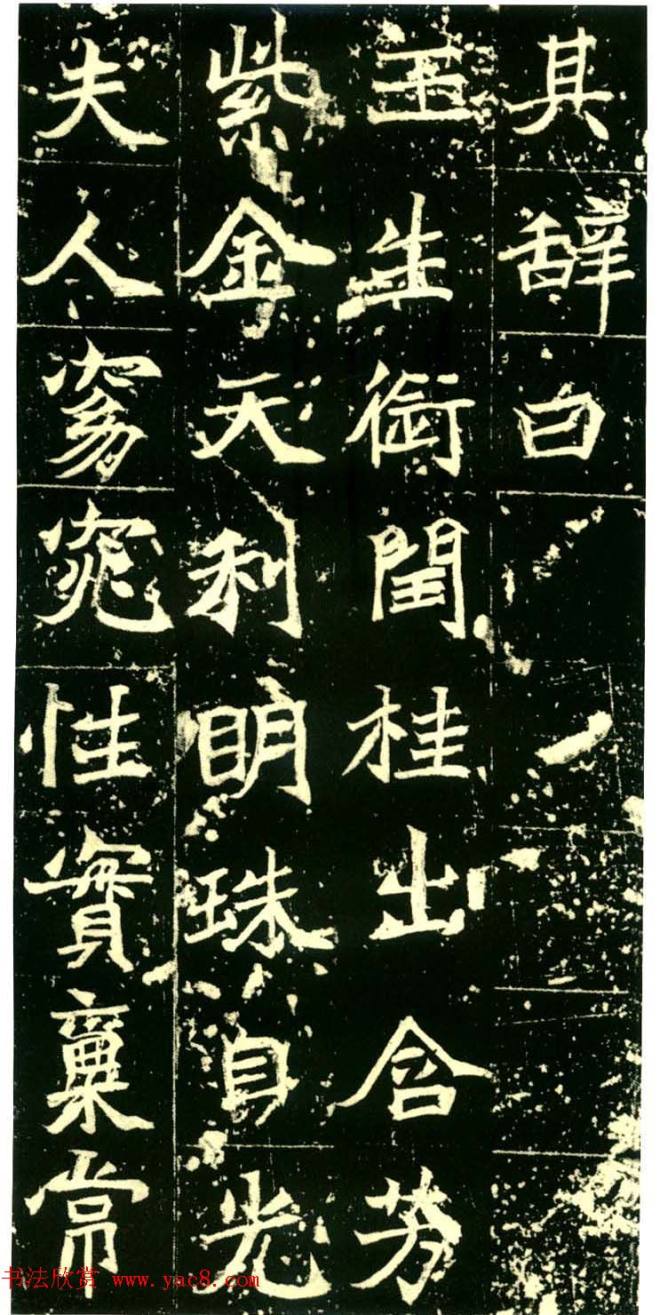 其辞曰
玉生銜閏桂出含芳
紫金天利明珠自光
夫人窈窕性實稟常
书法欣赏 www.yac8.com